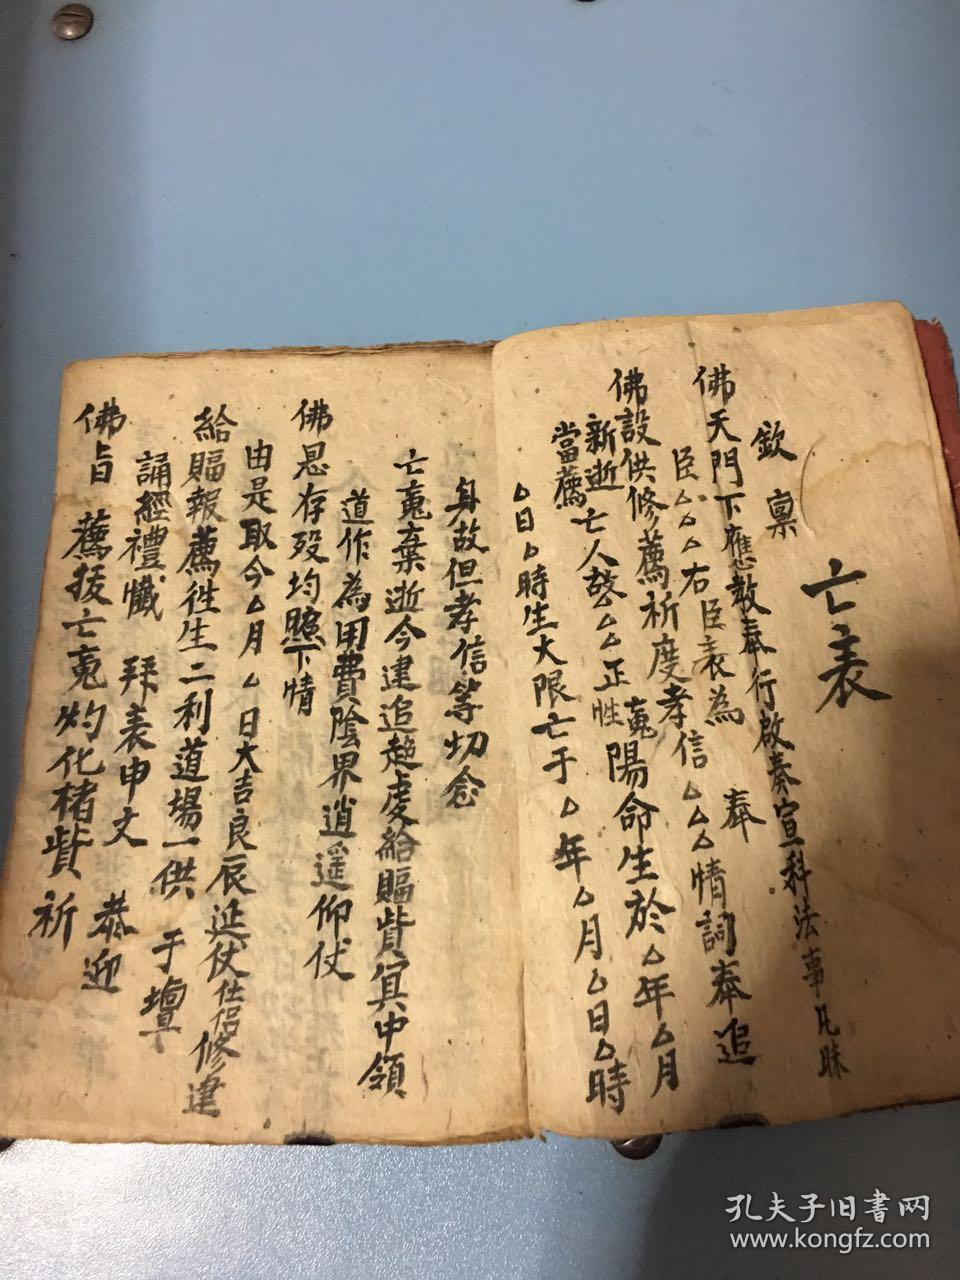 亡表
欽禀
佛天門下應教奉行啟奏宣科法事凡昧
臣厶厶右臣表為 奉
佛設供修薦祈度孝信厶厶厶情詞奉追
新逝亡人故厶厶正性䰟陽命生於厶年厶月
當薦
厶日厶時生大限亡于厶年厶月厶日厶時
身故但孝信等切念
亡䰟棄逝今建追超度給賵貲冥中領
道作為用費陰界逍遥仰仗
佛恩存殁均照下情
由是取今厶月厶日大吉良辰延仗仕侣修建
給賵報薦徃生二利道場一供 于壇
誦經禮懺 拜表申文 恭迎
佛旨 薦拔亡䰟灼化楮貲 祈
孔夫子旧書网
www.kongfz.com